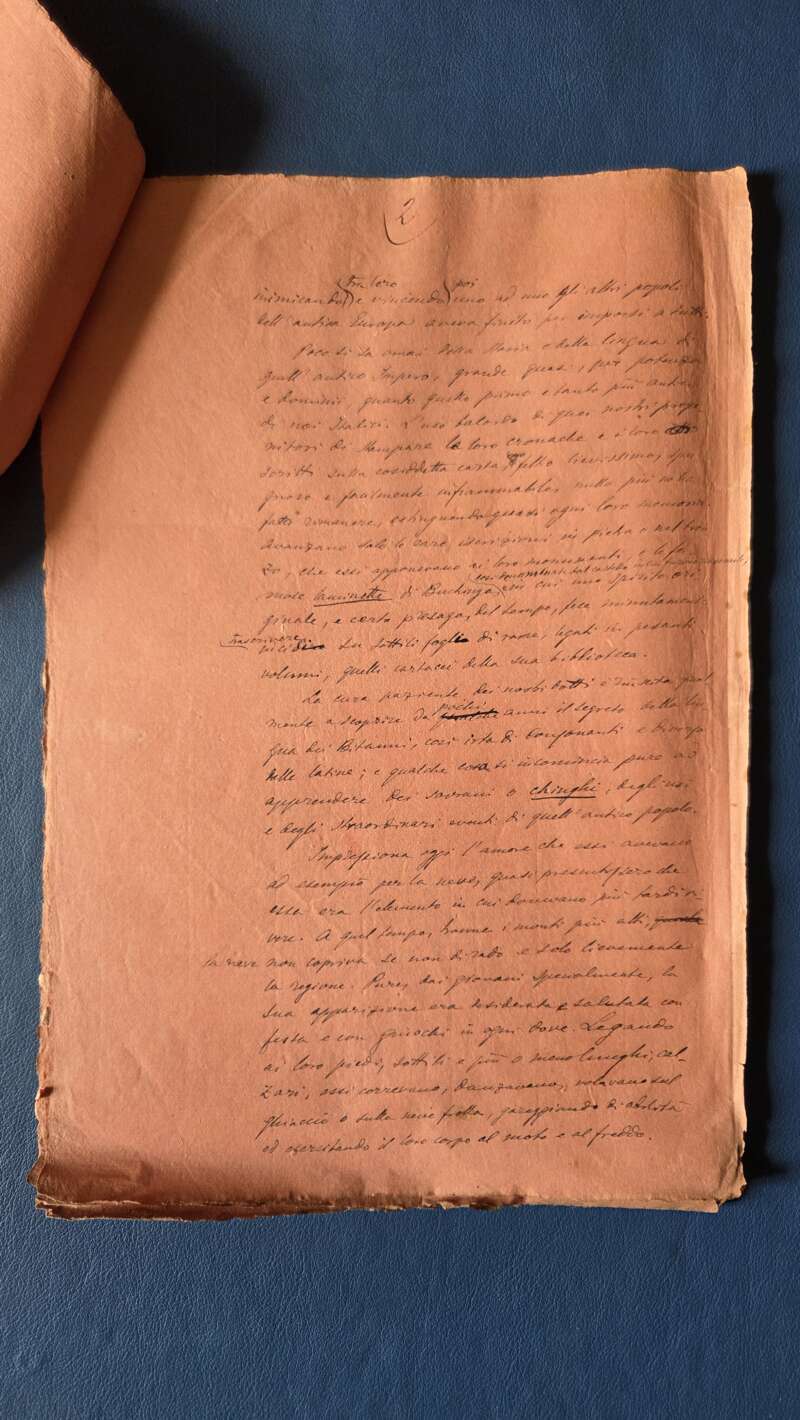 2
tra loro poi
inimicando e vincendo uno ad uno gli altri popoli
dell'antica Europa aveva finito per imporsi a tutti.
Poco si sa omai della storia e della lingua di
quell'antico Impero, grande quasi, per potenza
e dominii, quanto questo primo e tanto più antico
di noi Italici. L'uso balordo di quei nostri proge-
nitori di stampare le loro cronache e i loro
scritti sulla cosiddetta carta, lievissima, spu-
gnosa e facilmente infiammabile, nulla più ne ha
fatto rimanere, estinguendo quasi ogni loro memoria.
Avanzano solo le rare iscrizioni in pietra o nel bron-
zo, che essi apponevano ai loro monumenti, e le fa-
mose laminette di in cui uno spirito ori-
ginale, e certo presago, del tempo, fece minutamente
trascrivere
su sottili foglie di rame, legati in pesanti
volumi, quelli cartacei della sua biblioteca.
La cura paziente dei nostri dotti è riuscita final-
pochi
mente a scoprire da anni il segreto della lin-
gua dei Britanni, così irta di consonanti e diversa
dalle latine; e qualche cosa si incomincia pure ad
apprendere dei sovrani o chinghi, degli usi
e degli straordinari eventi di quell'antico popolo.
Impressiona oggi l'amore che essi avevano
ad esempio per la neve, quasi presentissero che
essa era l'elemento in cui dovevano più tardi vi-
vere. A quel tempo, tranne i monti più alti,
la neve non copriva se non di rado e solo lievemente
la regione. Pure, dai giovani specialmente, la
sua apparizione era desiderata e salutata con
festa e con giuochi in ogni dove. Legando
ai loro piedi, sottili e più o meno lunghi, cal-
zari, essi correvano, danzavano, volavano sul
ghiaccio o sulla neve folta, gareggiando di abilità
ed esercitando il loro corpo al moto e al freddo.